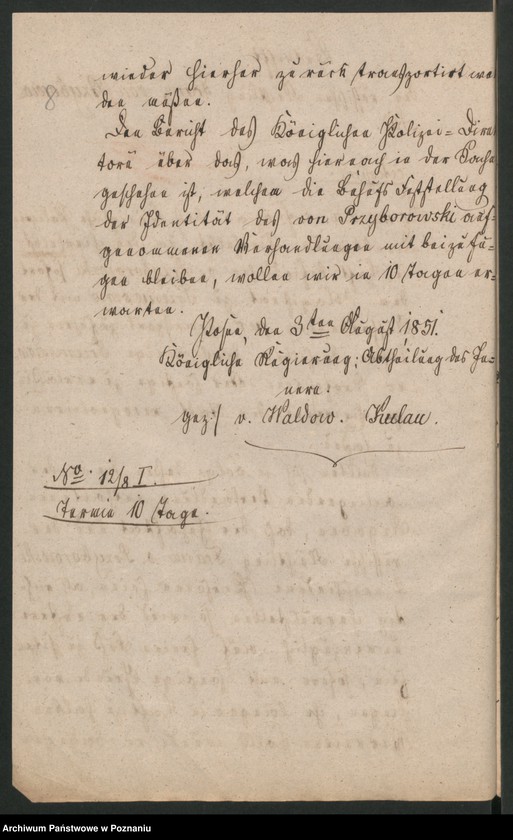 wieder hierher zurück transportirt wer
den müßen.
Den Bericht des Königlichen Polizei=Direk
tors über das, was hiernach in der Sache
geschehen ist, welchem die Behufs Feststellung
der Identität des von Przyborowski auf=
genommenen Verhandlungen mit beizufü=
gen bleiben, wollen wir in 10 Tagen er=
warten.
Posen, den 3ten August 1851.
Königliche Regierung; Abtheilung des In=
nern.
gez:/ v. Waldow.
No. 12/8 I.
Termin 10 Tage.
Archiwum Państwowe w Poznaniu